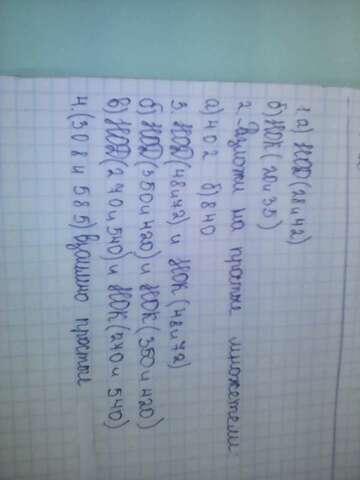 1. а) НОД (28 и 42)
б) НОК (20 и 35)
2 Разложи на простые множетели
а) 402 б) 840
3. НОД (48 и 72) и НОК (48 и 72)
б) НОД (350 и 420) и НОК (350 и 420)
в) НОД (270 и 540) и НОК (270 и 540)
4. (308 и 585) взаимно простые